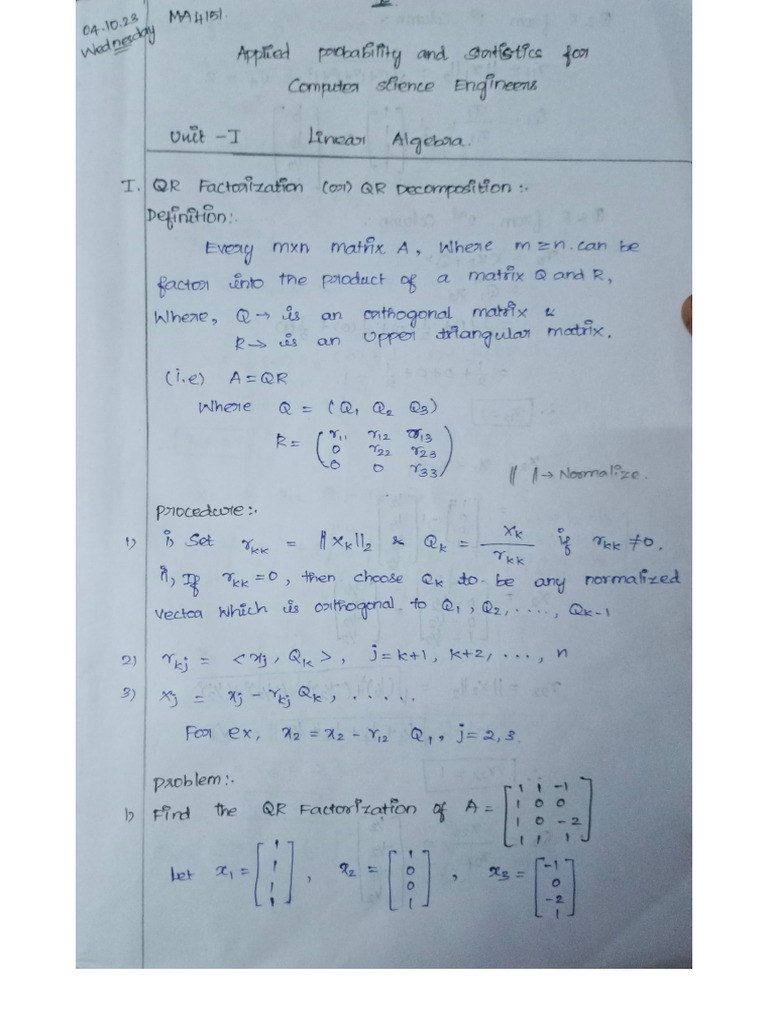 04.10.23
Wednesday
MA4151.
Applied probability and statistics for
Computer science Engineers
Unit -I Linear Algebra.
I. QR Factorization (or) QR Decomposition :.
Definition:.
Every mxn matrix A, Where m ≥ n. can be
factor into the product of a matrix Q and R,
Where, Q → is an orthogonal matrix &
R → is an upper triangular matrix.
(i.e) A = QR
Where Q = (Q1 Q2 Q3)
R = ( r11 r12 r13
0 r22 r23
0 0 r33 )
|| || → Normalize.
Procedure:.
1) i) Set rkk = ||xk||2 & Qk = xk / rkk if rkk ≠ 0.
ii, If rkk = 0, then choose Qk to be any normalized
vector which is orthogonal to Q1, Q2, ...., Qk-1
2) rkj = <xj, Qk>, j = k+1, k+2, ..., n
3) xj = xj - rkj Qk, .....
For ex, x2 = x2 - r12 Q1, j = 2, 3.
Problem:.
1) Find the QR Factorization of A = [ 1 1 -1
1 0 0
1 0 -2
1 1 1 ]
Let x1 = [ 1 1 1 1 ], x2 = [ 1 0 0 1 ], x3 = [ -1 0 -2 1 ]